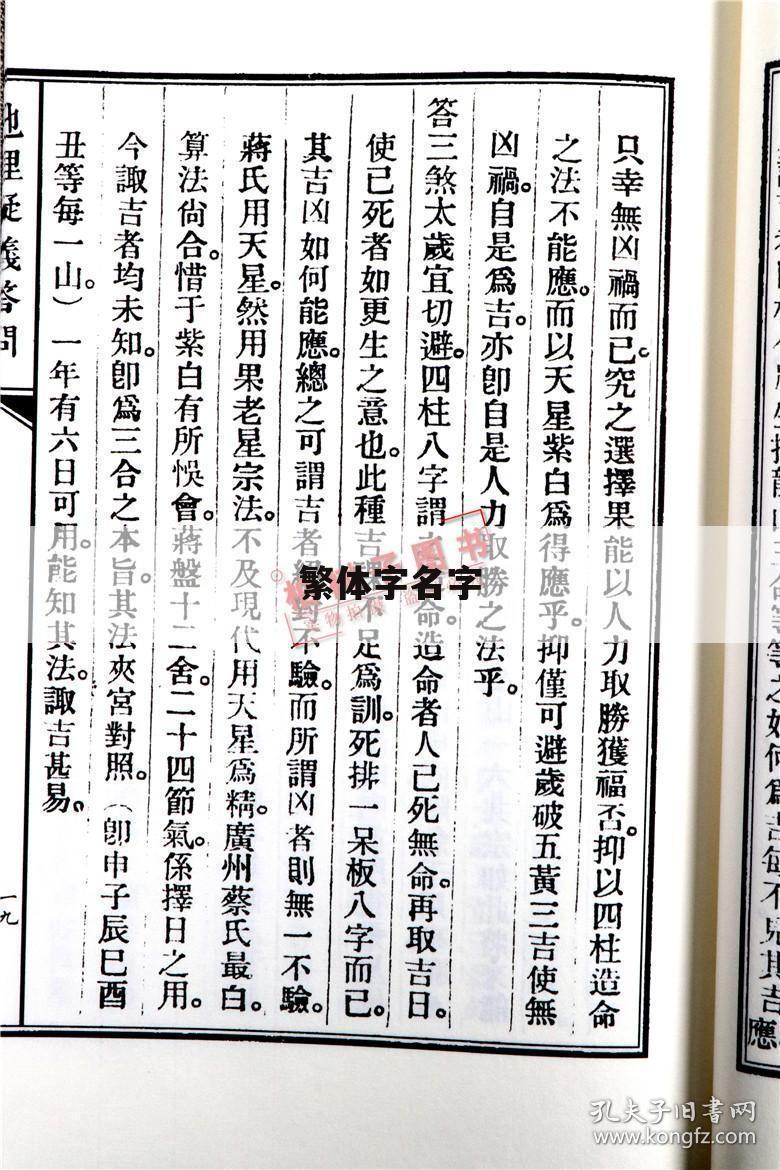 只幸無凶禍而已。究之選擇果能以人力取勝獲福否。抑以四柱造命
之法不能應。而以天星紫白爲得應乎。抑僅可避歲破五黃三吉使無
凶禍。自是爲吉。亦卽自是人力取勝之法乎。
答三煞太歲宜切避。四柱八字謂之造命。造命者人已死無命。再取吉日。
使已死者如更生之意也。此種吉課不足爲訓。死排一呆板八字而已。
其吉凶如何能應。總之可謂吉者絕對不驗。而所謂凶者則無一不驗。
蔣氏用天星。然用果老星宗法。不及現代用天星爲精。廣州蔡氏最白。
算法尙合。惜于紫白有所悞會。蔣盤十二舍。二十四節氣。係擇日之用。
今諏吉者均未知。卽爲三合之本旨。其法夾宮對照。（卽申子辰巳酉
丑等每一山）一年有六日可用。能知其法。諏吉甚易。
地理疑義答問
一九
繁体字名字
孔夫子旧書网
www.kongfz.com